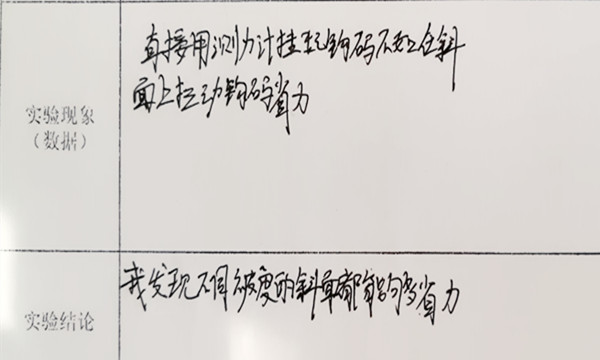 直接用测力计挂起钩码不如在斜
面上拉动钩码省力
实验现象
（数据）
我发现不同坡度的斜面都能够省力
实验结论